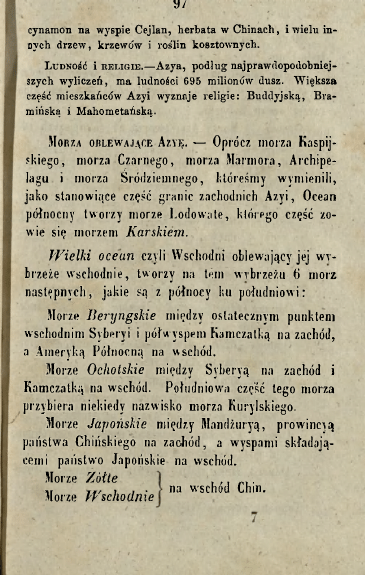 97
cynamon na wyspie Cejlan, herbata w Chinach, i wielu in-
nych drzew, krzewów i roślin kosztownych.
Ludność i religie.—Azya, podług najprawdopodobniej-
szych wyliczeń, ma ludności 695 milionów dusz. Większa
część mieszkańców Azyi wyznaje religie: Buddyjską, Bra-
mińską i Mahometańską.
Morza oblewające Azyę. — Oprócz morza Kaspij-
skiego, morza Czarnego, morza Marmora, Archipe-
lagu i morza Śródziemnego, któreśmy wymienili,
jako stanowiące część granic zachodnich Azyi, Ocean
północny tworzy morze Lodowate, którego część zo-
wie się morzem Karskiem.
Wielki ocean czyli Wschodni oblewający jej wy-
brzeże wschodnie, tworzy na tem wybrzeżu 6 morz
następnych, jakie są z północy ku południowi:
Morze Beryngskie między ostatecznym punktem
wschodnim Syberyi i półwyspem Kamczatką na zachód,
a Ameryką Północną na wschód.
Morze Ochotskie między Syberyą na zachód i
Kamczatką na wschód. Południowa część tego morza
przybiera niekiedy nazwisko morza Kurylskiego.
Morze Japońskie między Mandżuryą, prowincyą
państwa Chińskiego na zachód, a wyspami składają-
cemi państwo Japońskie na wschód.
Morze Żółte
Morze Wschodnie } na wschód Chin.
7